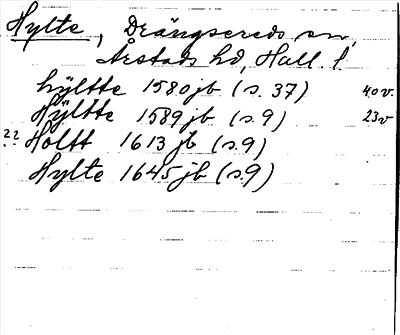 Hylte, Drängsereds sn,
Årstads hd, Hall. l.
hÿltte 1580 jb (s. 37) 40 v.
Hÿltte 1589 jb (s. 9) 23 v
?? Holtt 1613 jb (s. 9)
Hylte 1645 jb (s. 9)